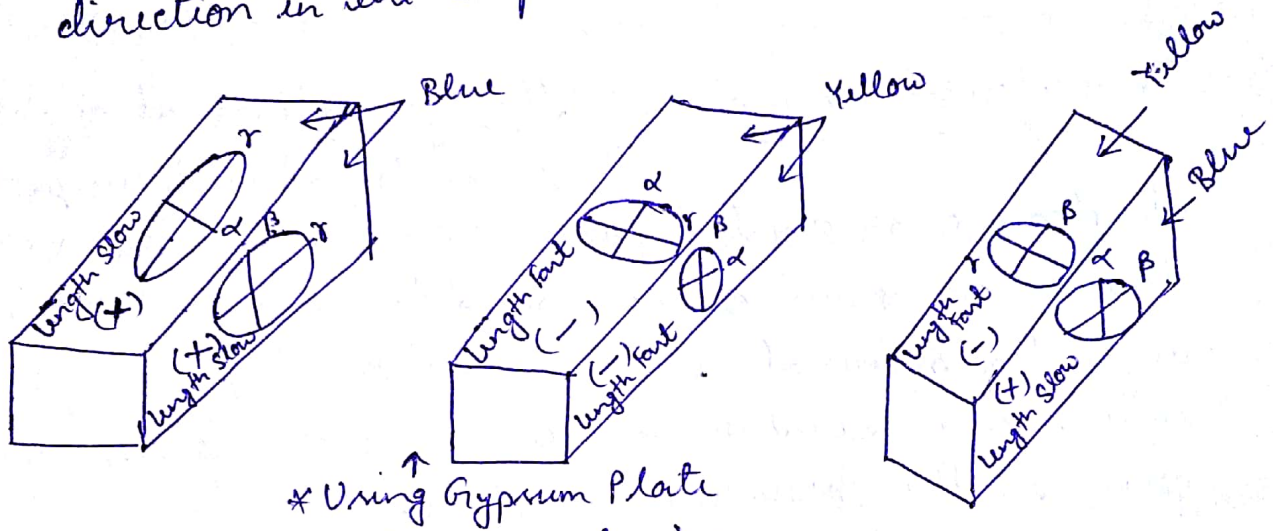 direction in
Blue
γ
α
β
γ
Length Slow
(+)
(+)
Length Slow
Yellow
α
γ
β
α
Length Fast
(-)
(-)
Length Fast
Yellow
Blue
β
γ
α
β
Length
Fast
(-)
(+)
Length Slow
↑
* Using Gypsum Plate